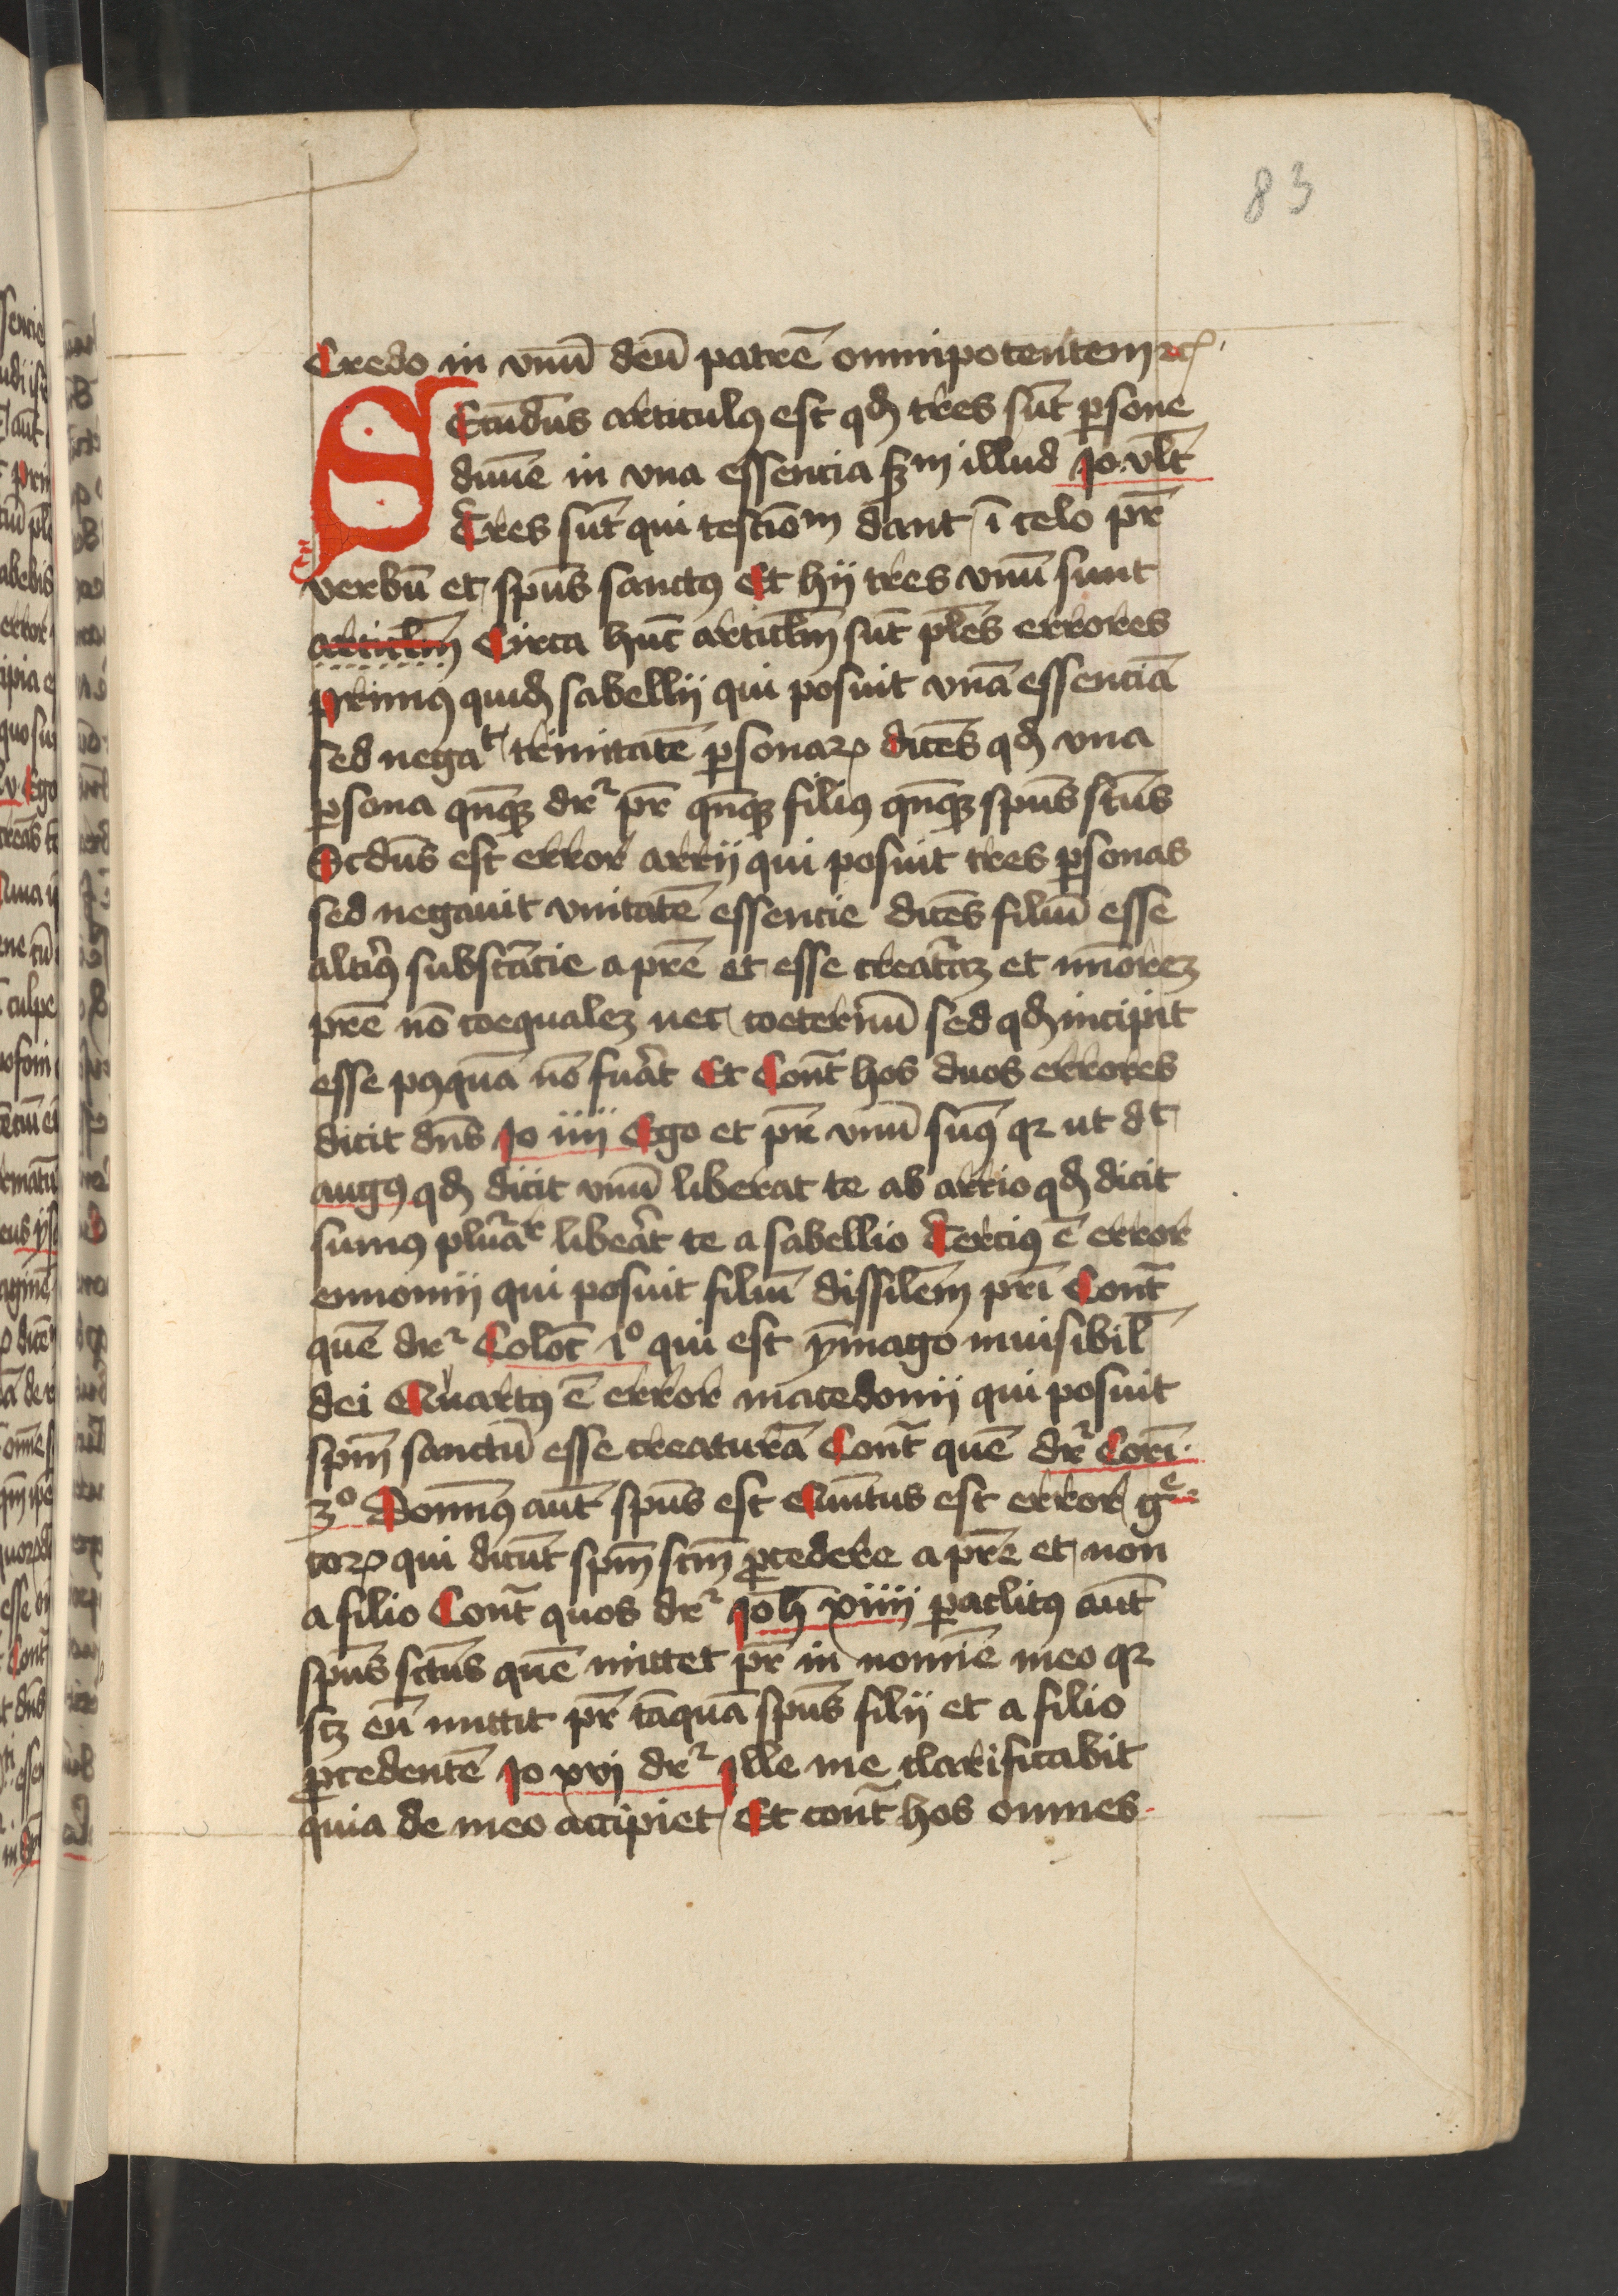 83
Credo in vnū deū patrē omnipotentem ꝛcꝭ
Secūdus articulꝯ est qd̄ tres sūt ꝑsone
diuīe in vna essencia scd̄m illud Jo. vlt̄
Tres sūt qui testiōm dant ī celo pr̄
verbū et spūs sanctꝯ Et hij tres vnū sunt
articlm̄ Circa hūc articlm̄ sūt pl̄es errores
primꝯ quidꝫ sabellij qui posuit vnā essenciā
sed negaᵗ trinitatē ꝑsonaꝝ dicēs qd̄ vna
ꝑsona qn̄qꝫ dr̄ pr̄ qn̄qꝫ filiꝯ qn̄qꝫ spūs sc̄us
Scdūs est error arrij qui posuit tres ꝑsonas
sed negauit vnitatē essencie dicēs filiū esse
altiꝯ substācie a pr̄e et esse creat̄aꝫ et mīorēꝫ
pr̄e nō coequalēꝫ nec coeternū sed qd̄ incipit
esse pꝯquā nō fuāt Et Cont̄ hos duos errores
dicit dn̄s Jo iiij Ego et pr̄ vnū sumꝯ qꝛ ut dᵗ
augꝯ qd̄ dicit vnū liberat te ab arrio qd̄ dicit
sumꝯ plūaᵗ libeāt te a sabellio Terciꝯ ē error
eunomij qui posuit filiū dissilēm pr̄i Cont̄
quē dr̄ Coloc̄ 1º qui est ymago inuisibil̄
dei Quartꝯ ē error macedonij qui posuit
spm̄ sanctū esse creaturā Cont̄ quē dr̄ Corī.
3º Domīꝯ aūt spūs est Quītus est error gᵉ
coꝝ qui dicūt spm̄ scm̄ ꝓcedere a pr̄e et non
a filio Cont̄ quos dr̄ Joh̄ xiiij ꝑaclitꝯ aūt
spūs sctūs quē mittet pr̄ in nomīe meo qꝛ
scꝫ eū mittit pr̄ tāquā spūs filij et a filio
ꝓcedentē Jo xvj dr̄ Jlle me clarificabit
quia de meo accipiet Et cont̄ hos omnes